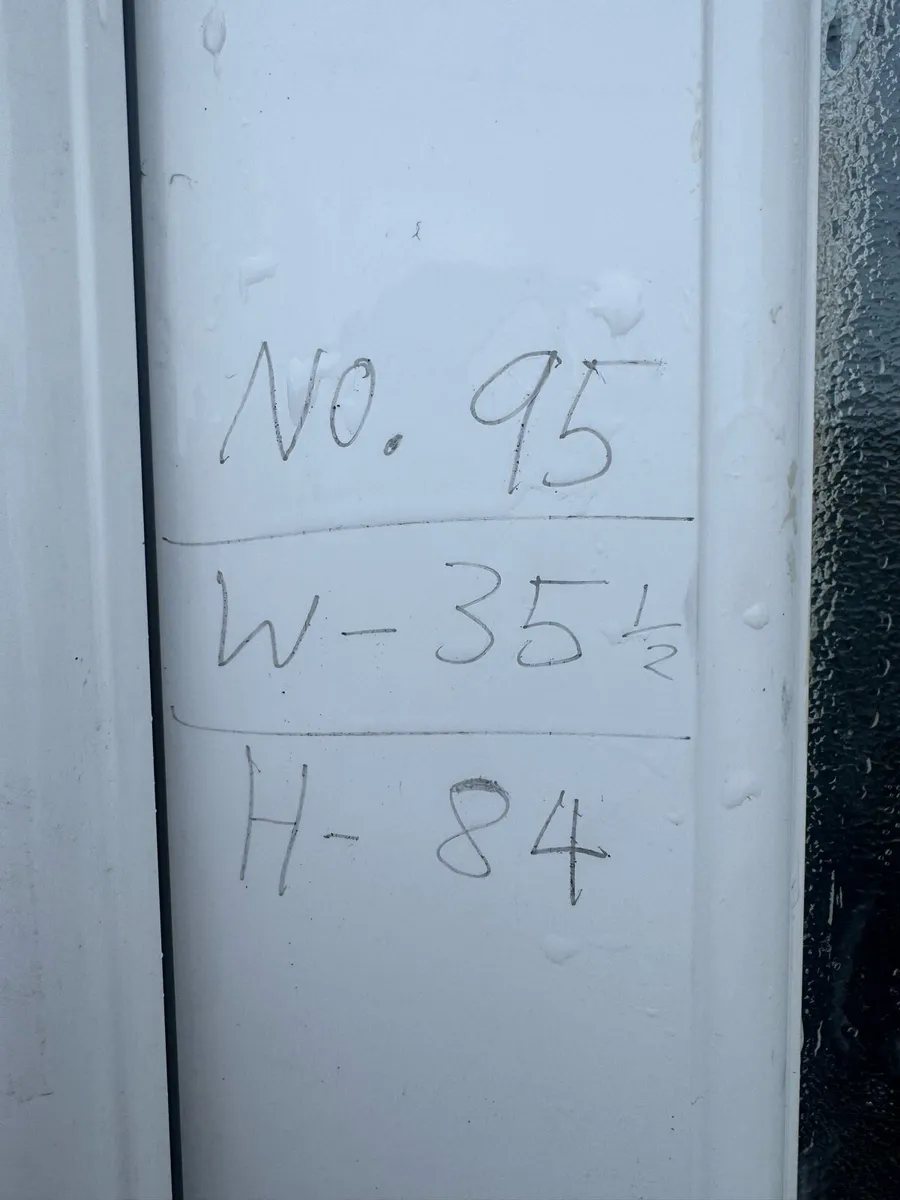 NO. 95
W - 35 1/2
H - 84